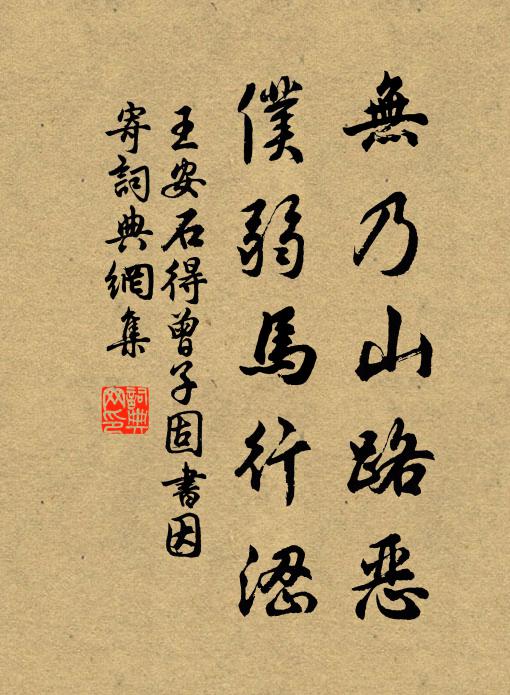 無乃山路惡
僕弱馬行澀
王安石得曾子固書因
寄詞典網集
詞典
网印